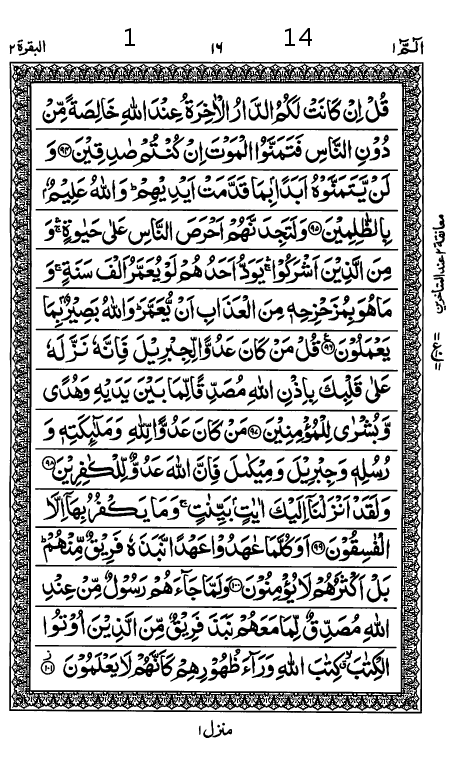 الٓمّٓ ۱ 14 ۱۶ 1 البقرة ۲
قُلۡ اِنۡ كَانَتۡ لَكُمُ الدَّارُ الۡاٰخِرَةُ عِنۡدَ اللّٰهِ خَالِصَةً مِّنۡ
دُوۡنِ النَّاسِ فَتَمَنَّوُا الۡمَوۡتَ اِنۡ كُنۡتُمۡ صٰدِقِيۡنَ ﴿۹۴﴾ وَ
لَنۡ يَّتَمَنَّوۡهُ اَبَدًۢا بِمَا قَدَّمَتۡ اَيۡدِيۡهِمۡؕ وَاللّٰهُ عَلِيۡمٌۢ
بِالظّٰلِمِيۡنَ ﴿۹۵﴾ وَلَتَجِدَنَّهُمۡ اَحۡرَصَ النَّاسِ عَلٰى حَيٰوةٍ ۛۚ وَ
مِنَ الَّذِيۡنَ اَشۡرَكُوۡا ۛۚ يَوَدُّ اَحَدُهُمۡ لَوۡ يُعَمَّرُ اَلۡفَ سَنَةٍ ۚ وَ
مَا هُوَ بِمُزَحۡزِحِهٖ مِنَ الۡعَذَابِ اَنۡ يُّعَمَّرَؕ وَاللّٰهُ بَصِيۡرٌۢ بِمَا
يَعۡمَلُوۡنَ ﴿۹۶﴾ ع قُلۡ مَنۡ كَانَ عَدُوًّا لِّجِبۡرِيۡلَ فَاِنَّهٗ نَزَّلَهٗ
عَلٰى قَلۡبِكَ بِاِذۡنِ اللّٰهِ مُصَدِّقًا لِّمَا بَيۡنَ يَدَيۡهِ وَهُدًى
وَّبُشۡرٰى لِلۡمُؤۡمِنِيۡنَ ﴿۹۷﴾ مَنۡ كَانَ عَدُوًّا لِّلّٰهِ وَمَلٰٓٮِٕكَتِهٖ وَ
رُسُلِهٖ وَجِبۡرِيۡلَ وَمِيۡكٰٮلَ فَاِنَّ اللّٰهَ عَدُوٌّ لِّلۡكٰفِرِيۡنَ ﴿۹۸﴾
وَلَقَدۡ اَنۡزَلۡنَاۤ اِلَيۡكَ اٰيٰتٍۢ بَيِّنٰتٍۚ وَمَا يَكۡفُرُ بِهَاۤ اِلَّا
الۡفٰسِقُوۡنَ ﴿۹۹﴾ اَوَكُلَّمَا عٰهَدُوۡا عَهۡدًا نَّبَذَهٗ فَرِيۡقٌ مِّنۡهُمۡؕ
بَلۡ اَكۡثَرُهُمۡ لَا يُؤۡمِنُوۡنَ ﴿۱۰۰﴾ وَلَمَّا جَآءَهُمۡ رَسُوۡلٌ مِّنۡ عِنۡدِ
اللّٰهِ مُصَدِّقٌ لِّمَا مَعَهُمۡ نَبَذَ فَرِيۡقٌ مِّنَ الَّذِيۡنَ اُوۡتُوا
الۡكِتٰبَ ۙۗ كِتٰبَ اللّٰهِ وَرَآءَ ظُهُوۡرِهِمۡ كَاَنَّهُمۡ لَا يَعۡلَمُوۡنَ ﴿۱۰۱﴾
معانقة ۲ عند المتاخرين
منزل ۱